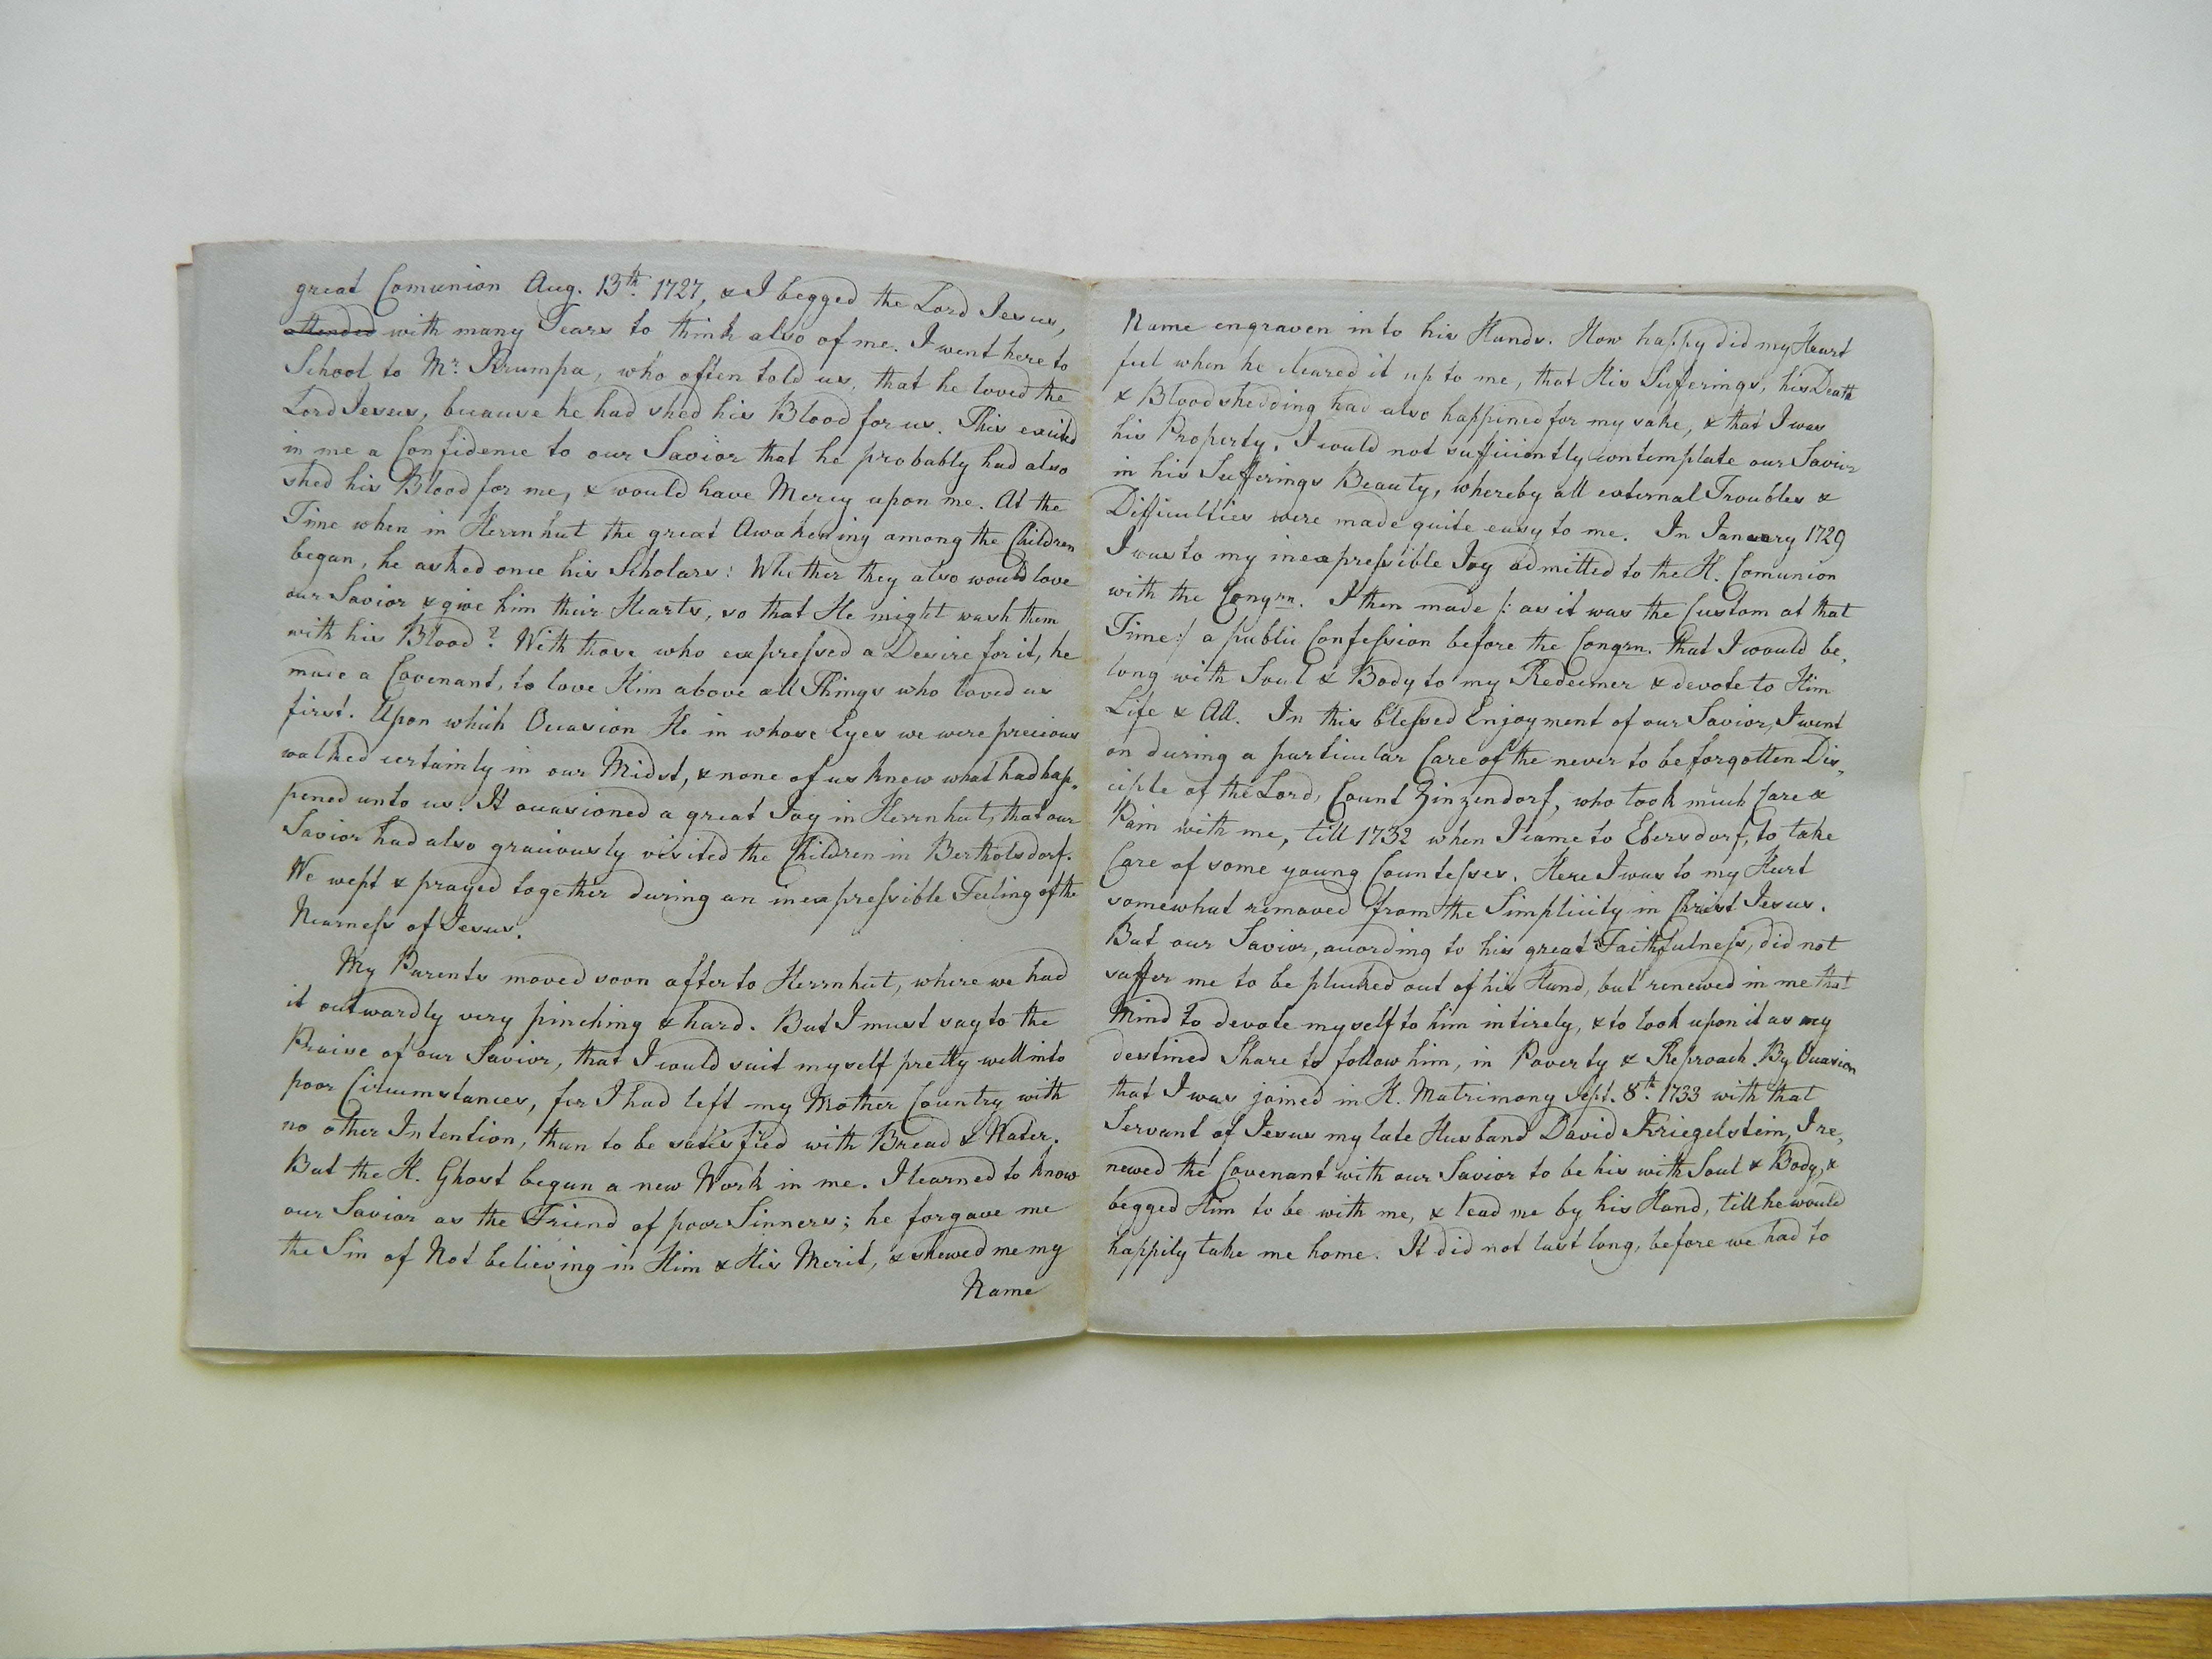 great Comunion Aug. 13th. 1727, & I begged the Lord Jesus,
attended with many Tears to think also of me. I went here to
School to Mr. Krumpa, who often told us, that he loved the
Lord Jesus, because he had shed his Blood for us. This excited
in me a Confidence to our Savior that he probably had also
shed his Blood for me, & would have Mercy upon me. At the
Time when in Herrnhut the great Awakening among the Children
began, he asked once his Scholars: Whether they also would love
our Savior & give him their Hearts, so that He might wash them
with his Blood? With those who expressed a Desire for it, he
made a Covenant, to love Him above all Things who loved us
first. Upon which Occasion He in whose Eyes we were precious
walked certainly in our Midst, & none of us knew what had hap-
pened unto us. It occasioned a great Joy in Herrnhut, that our
Savior had also graciously visited the Children in Bertholsdorf.
We wept & prayed together during an inexpressible Feeling of the
Nearness of Jesus.
My Parents moved soon after to Herrnhut, where we had
it outwardly very pinching & hard. But I must say to the
Praise of our Savior, that I could suit myself pretty well into
poor Circumstances, for I had left my Mother Country with
no other Intention, than to be satisfied with Bread & Water.
But the H. Ghost began a new Work in me. I learned to know
our Savior as the Friend of poor Sinners; he forgave me
the Sin of Not believing in Him & His Merit, & shewed me my
Name
Name engraven into his Hands. How happy did my Heart
feel when he cleared it up to me, that His Sufferings, his Death
& Bloodshedding had also happined for my sake, & that I was
his Property. I could not sufficiently contemplate our Savior
in his Sufferings Beauty, whereby all external Troubles &
Difficulties were made quite easy to me. In January 1729
I was to my inexpressible Joy admitted to the H. Comunion
with the Congrn. I then made /: as it was the Custom at that
Time:/ a public Confession before the Congrn. that I would be-
long with Soul & Body to my Redeemer & devote to Him
Life & All. In this blessed Enjoyment of our Savior, I went
on during a particular Care of the never to be forgotten Dis-
ciple of the Lord, Count Zinzendorf, who took much Care &
Pain with me, till 1732 when I came to Ebersdorf, to take
Care of some young Countesses. Here I was to my Hurt
somewhat removed from the Simplicity in Christ Jesus.
But our Savior, according to his great Faithfulness, did not
suffer me to be plucked out of his Hand, but renewed in me that
Mind to devote myself to him intirely, & to look upon it as my
destined Share to follow him, in Poverty & Reproach. By Occasion
that I was joined in H. Matrimony Sept. 8th. 1733 with that
Servant of Jesus my late Husband David Kriegelstein, I re-
newed the Covenant with our Savior to be his with Soul & Body, &
begged Him to be with me, & lead me by his Hand, till he would
happily take me home. It did not last long, before we had to